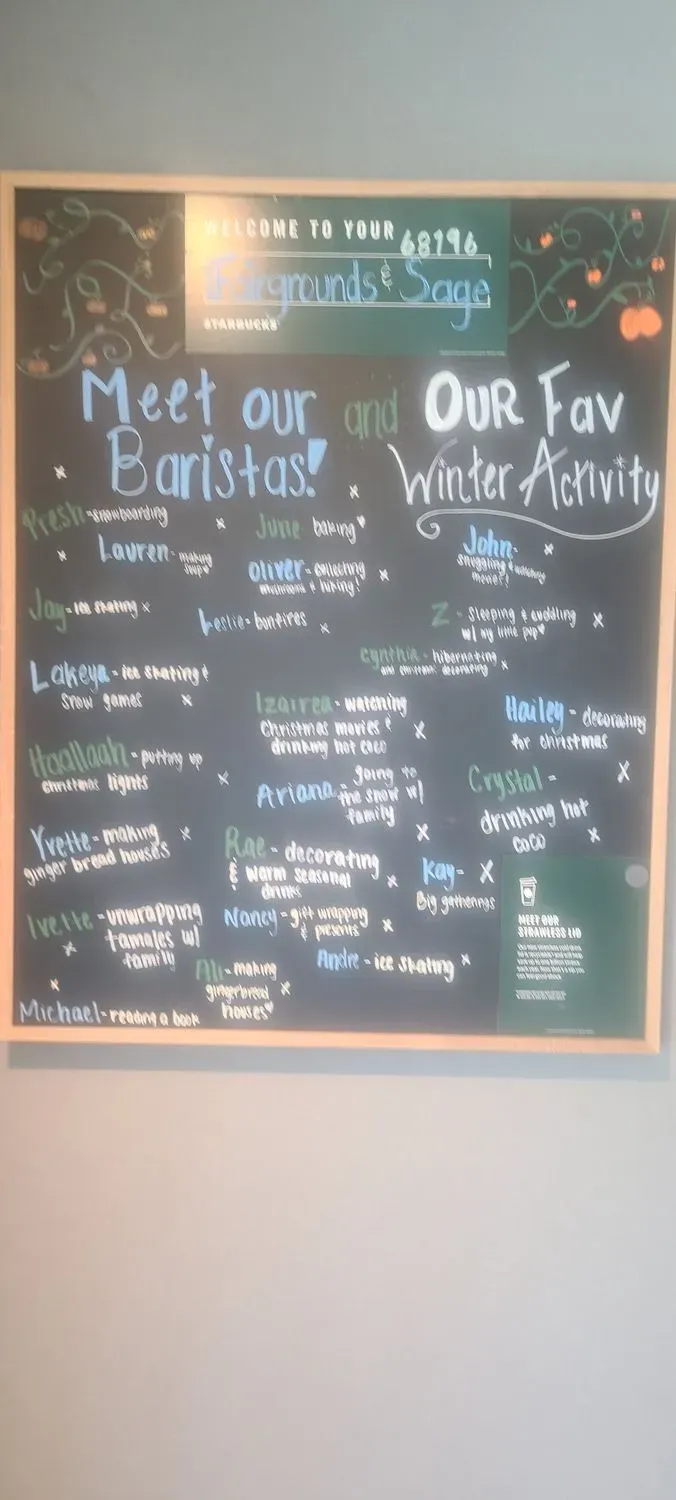 WELCOME TO YOUR
68196
Fairgrounds & Sage
STARBUCKS
Meet our and OUR Fav
Baristas! Winter Activity
Presh - snowboarding
June baking
Lauren - making
soup
Oliver - collecting
mushrooms & hiking!
John -
snuggling & watching
movies!
Jay - ice skating
Leslie - bonfires
Z - Sleeping & cuddling
w/ my little pup
Cynthia - hibernating
and christmas decorating
Lakeya - ice skating &
Snow games
Izairea - watching
Christmas movies &
drinking hot coco
Hailey - decorating
for christmas
Haallaah - putting up
christmas lights
Ariana - going to
the snow w/
family
Crystal -
drinking hot
coco
Yvette - making
ginger bread houses
Rae - decorating
& warm seasonal
drinks
Kay -
Big gatherings
Ivette - unwrapping
tamales w/
family
Nancy - gift wrapping
& presents
Ali - making
gingerbread
houses
Andre - ice skating
Michael - reading a book
MEET OUR
STRAWLESS LID